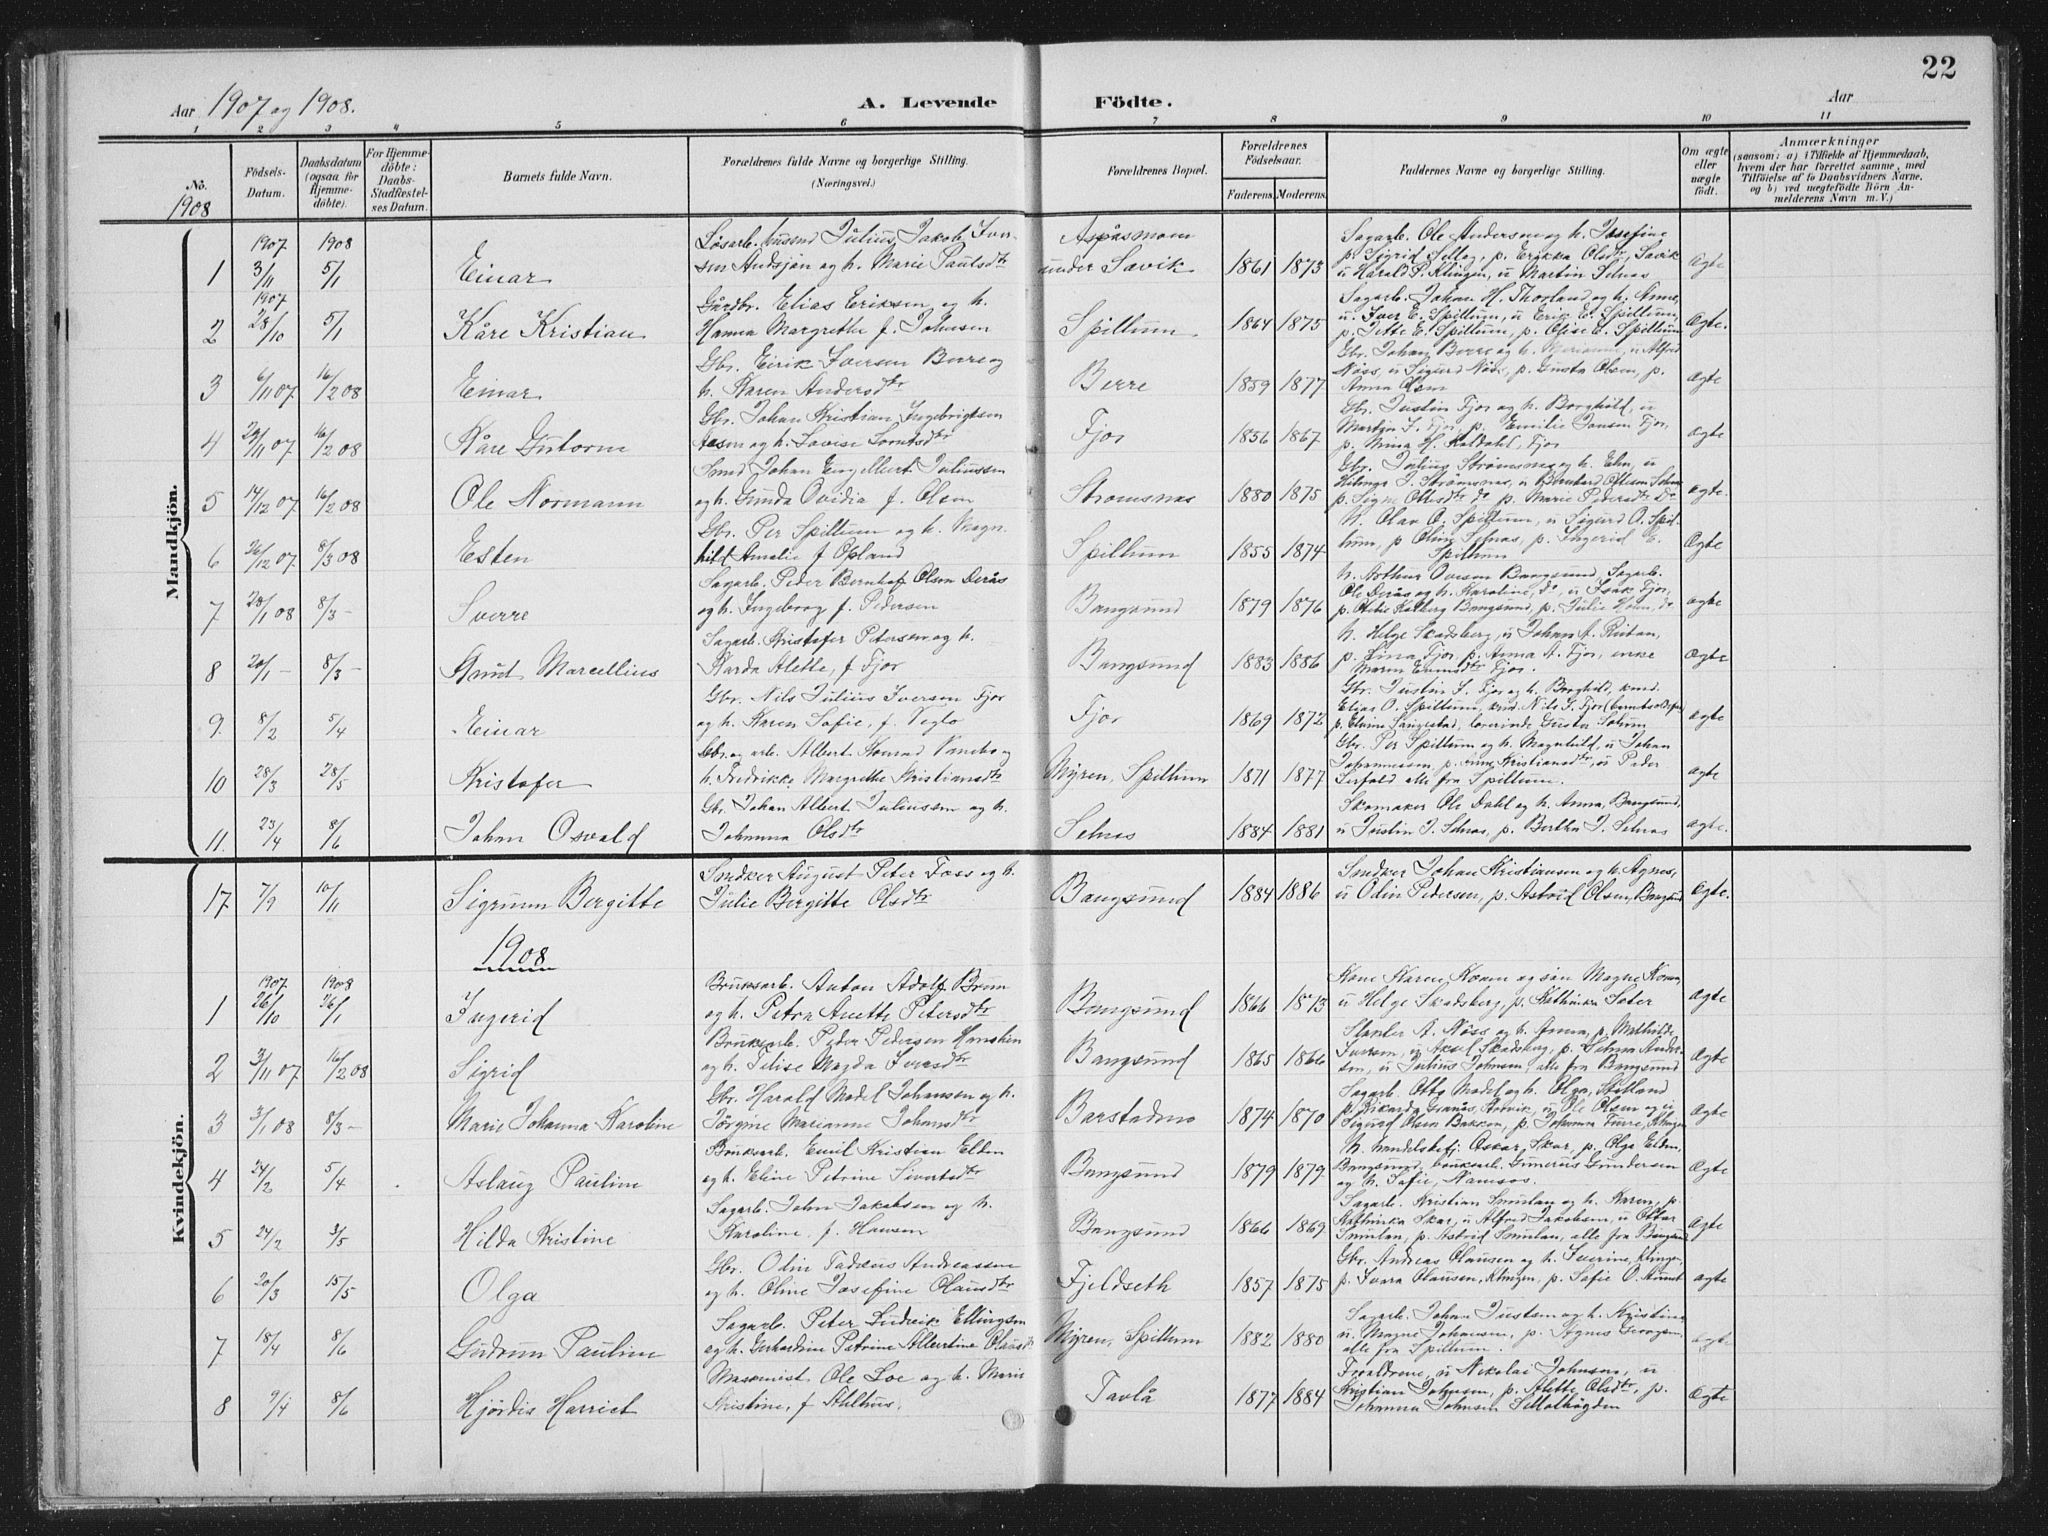 22
Aar 1907 og 1908.
A. Levende Födte.
Aar
1 2 3 4 5 6 7 8 9 10 11
No.
1908
Födsels-
Datum.
Daabsdatum
(ogsaa for
Hjemme-
döbte).
For Hjemme-
döbte:
Daabs-
Stadfæstel-
ses Datum.
Barnets fulde Navn.
Forældrenes fulde Navne og borgerlige Stilling.
(Næringsvei.)
Forældrenes Bopæl.
Forældrenes
Födselsaar.
Faderens. Moderens.
Faddernes Navne og borgerlige Stilling.
Om ægte
eller
uægte
födt.
Anmærkninger
(saasom: a) i Tilfælde af Hjemmedaab,
hvem der har forrettet samme, med
Tilföielse af to Daabsvidners Navne,
og b) ved uægtefödte Börn An-
melderens Navn m.V.)
Mandkjön.
1907 1908
1 3/11 5/1 Einar
Julius Jakob Iver-
sen og h. Marie Paulsdtr
Aspåsmoen
under Savik 1861 1873
Sagarb. Ole Andersen og h. Josefine
p. Sigrid p. Erikka Olsdtr, Savik
u. Harald P. Klingen, u. Martin Selnæs
Ægte
1907
2 28/10 5/1 Kåre Kristian
Gårdbr. Elias Eriksen og h.
Hanna Margrethe f. Johnsen
Spillum 1864 1875
Sagarb. Johan H. Thorland og h. Anne,
u. Iver E. Spillum, u. Erik E. Spillum,
p. Jette E. Spillum, p. Olise E. Spillum
Ægte.
3 6/11 07 16/2 08 Einar
Gbr. Eirik Iversen Berre og
h. Karen Andersdtr
Berre 1859 1877
Gbr. Johan Berre og h. u. Alfred
Näss, u. Sigurd Näss, p. Gusta Olsen, p.
Anna Olsen
Ægte
4 29/11 07 16/2 08 Kåre Gutorm
Gbr. Johan Kristian Ingebrigtsen
og h. Lovise
Fjor 1856 1867
Gbr. Justin Fjor og h. Borghild, u.
Martin I. Fjor, p. Emilie Jansen Fjor,
p. Mina H. Kaldahl, Fjor
Ægte
5 14/12 07 16/2 08 Ole Normann
Smed Johan Engelbert Juliussen
og h. Gunda Ovidia f. Olsen
Strömsnæs 1880 1875
Gbr. Julius Strömsnes og h. Elen, u.
Strömsnes, u. Bernhard Ottesen
p. Signe Ottesdtr do p. Marie Pedersdtr do
Ægte.
6 26/12 07 8/3 08 Esten
Gbr. Per Spillum og h. Magn-
hild Amalie f Opland
Spillum 1855 1874
N. Olav O. Spillum, u. Sigurd O. Spil-
lum, p. Oline Selnæs, p. Ingerid E.
Spillum
Ægte
7 20/1 08 8/3 – Sverre
Sagarb. Peder Bernhof Olsen Derås
og h. Ingeborg f. Pedersen
Bangsund 1879 1876
N. Arthur Iversen Bangsund, Sagarb.
Ole Derås og h. Karoline, do, u. Isak Fjor,
Bangsund, p. Julie do
Ægte
8 20/1 – 8/3 – Knut Marcellius
Sagarb. Kristofer Petersen og h.
Karda Alette, f Fjor
Bangsund 1883 1886
N. Helge Skadsberg, u. Johan A. Reitan,
p. Lina Fjor, p. Anna A. Fjor, enke
Maren Fjor.
Ægte
9. 8/2 5/4 Einar
Gbr. Nils Julius Iversen Fjor
og h. Karen Sofie, f. Veglo
Fjor 1869 1872
Gbr. Justin I. Fjor og h. Borghild,
Elias O. Spillum, Nils I. Fjor
p. Eline lærerinde Gusta Solum
Ægte
10 28/3 28/5 Kristofer
Gbr. og arb. Albert Konrad
h. Fredrikke Margrethe Kristiansdtr
Myren, Spillum 1871 1877
Gbr. Per Spillum og h. Magnhild, u. Johan
Johannessen, p. Kristiansdtr, u. Peder
alle fra Spillum.
Ægte
11. 23/4 8/6 Johan Osvald
Gbr. Johan Albert Juliussen og h.
Johanna Olsdtr
Selnes 1884 1881
Skomaker Ole Dahl og h. Anna, Bangsund,
u. Justin J. Selnæs, p. Bertha J. Selnæs
Ægte.
Kvindekjön.
17 7/9 10/11 Sigrunn Bergitte
Snedker August Peter Foss og h.
Julie Bergitte Olsdtr
Bangsund 1884 1886
Snedker Johan Kristiansen og h. Agnes,
u. Odin Pedersen, p. Astrid Olsen, Bangsund
Ægte.
1908
1907 1908
1 26/10 26/1 Ingerid
Bruksarb. Anton Adolf Brun
og h. Petra Anette Petersdtr
Bangsund 1866 1873
Kone Karen Komen og søn Magne Komen
u. Helge Skadsberg, p. Kathinka Sæter
Ægte
2 3/11 07 16/2 08 Sigrid
Bruksarb. Peder Pedersen
og h. Telise Magda Iversdtr
Bangsund 1865 1866
A. Näss og h. Anna, p. Mathilde
Iversen, u. Aksel Skadsberg, p. Selma Ander-
sen, u. Julius Johnsen, alle fra Bangsund
Ægte
3 3/1 08 8/3 – Marie Johanna Karoline
Gbr. Harald Model Johansen og h.
Jörgine Marianne Johansdtr
Barstadmo 1874 1870
Sagarb. Otto Modell og h. Olga,
p. Rikarda Granås, u. Ole Olsen og u.
Sigurd Olsen Bakken, p. Johanna
Ægte
4 24/2 5/4 Aslaug Pauline
Bruksarb. Emil Kristian Elden
og h. Eline Petrine Sivertsdtr
Bangsund 1879 1879
N. handelsbetj. Oskar Skar, p. Olga Elden,
Bangsund, bruksarb. Gunerius Gundersen
og h. Sofie, Namsos.
Ægte
5 24/2 3/5 Hilda Kristine
Sagarb. John Jakobsen og h.
Karoline f. Hansen
Bangsund 1866 1869
Sagarb. Kristian Smulan og h. Karen, p.
Kathinka Skar, u. Alfred Jakobsen, u. Ottar
Smulan, p. Astrid Smulan, alle fra Bangsund
Ægte
6 20/3 15/5 Olga
Gbr. Odin Tadæus Andreassen
og h. Oline Josefine Olausdtr
Fjeldseth 1857 1875
Gbr. Andreas Olausen og h. Iverine, Klingen,
p. Ivara Olausen, Klingen, p. Sofie O.
Ægte
7 18/4 8/6 Gudrun Pauline
Sagarb. Peter Ludvik Ellingsen
og h. Gerhardine Petrine Albertine Olausdtr
Myren, Spillum 1882 1880
Sagarb. Johan Justsen og h. Kristine
u. Magne Johansen, p. Agnes
alle fra Spillum.
Ægte
8 9/4 8/6 Hjördis Harriet
Maskinist Ole Loe og h. Marie
Kristine, f Ahlhus.
Tavlå 1877 1884
Forældrene, u. Nikolai Johnsen, u.
Kristian Johnsen, p. Alette Olsdtr, p.
Johanna Johnsen
Ægte